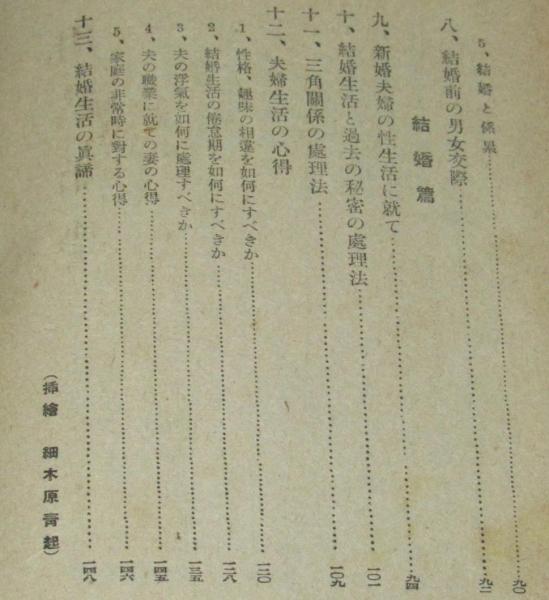 5、結婚と係累……九〇
八、結婚前の男女交際……九二
結婚篇
九、新婚夫婦の性生活に就て……九四
十、結婚生活と過去の秘密の處理法……一〇一
十一、三角關係の處理法……一〇九
十二、夫婦生活の心得
1、性格、趣味の相違を如何にすべきか……一二〇
2、結婚生活の倦怠期を如何にすべきか……一二八
3、夫の浮氣を如何に處理すべきか……一三五
4、夫の職業に就ての妻の心得……一四五
5、家庭の非常時に對する心得……一四六
十三、結婚生活の眞諦……一四八
(挿繪 細木原青起)